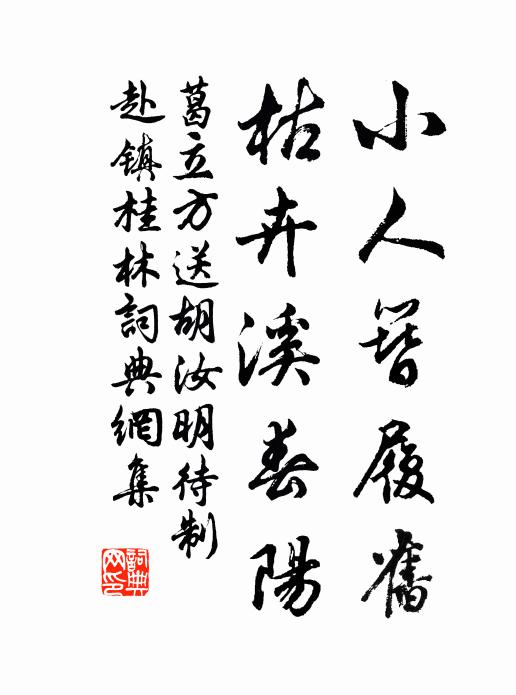 小人簪履舊
枯卉溪春陽
葛立方送胡汝明待制
赴鎮桂林詞典網集
詞典
网印